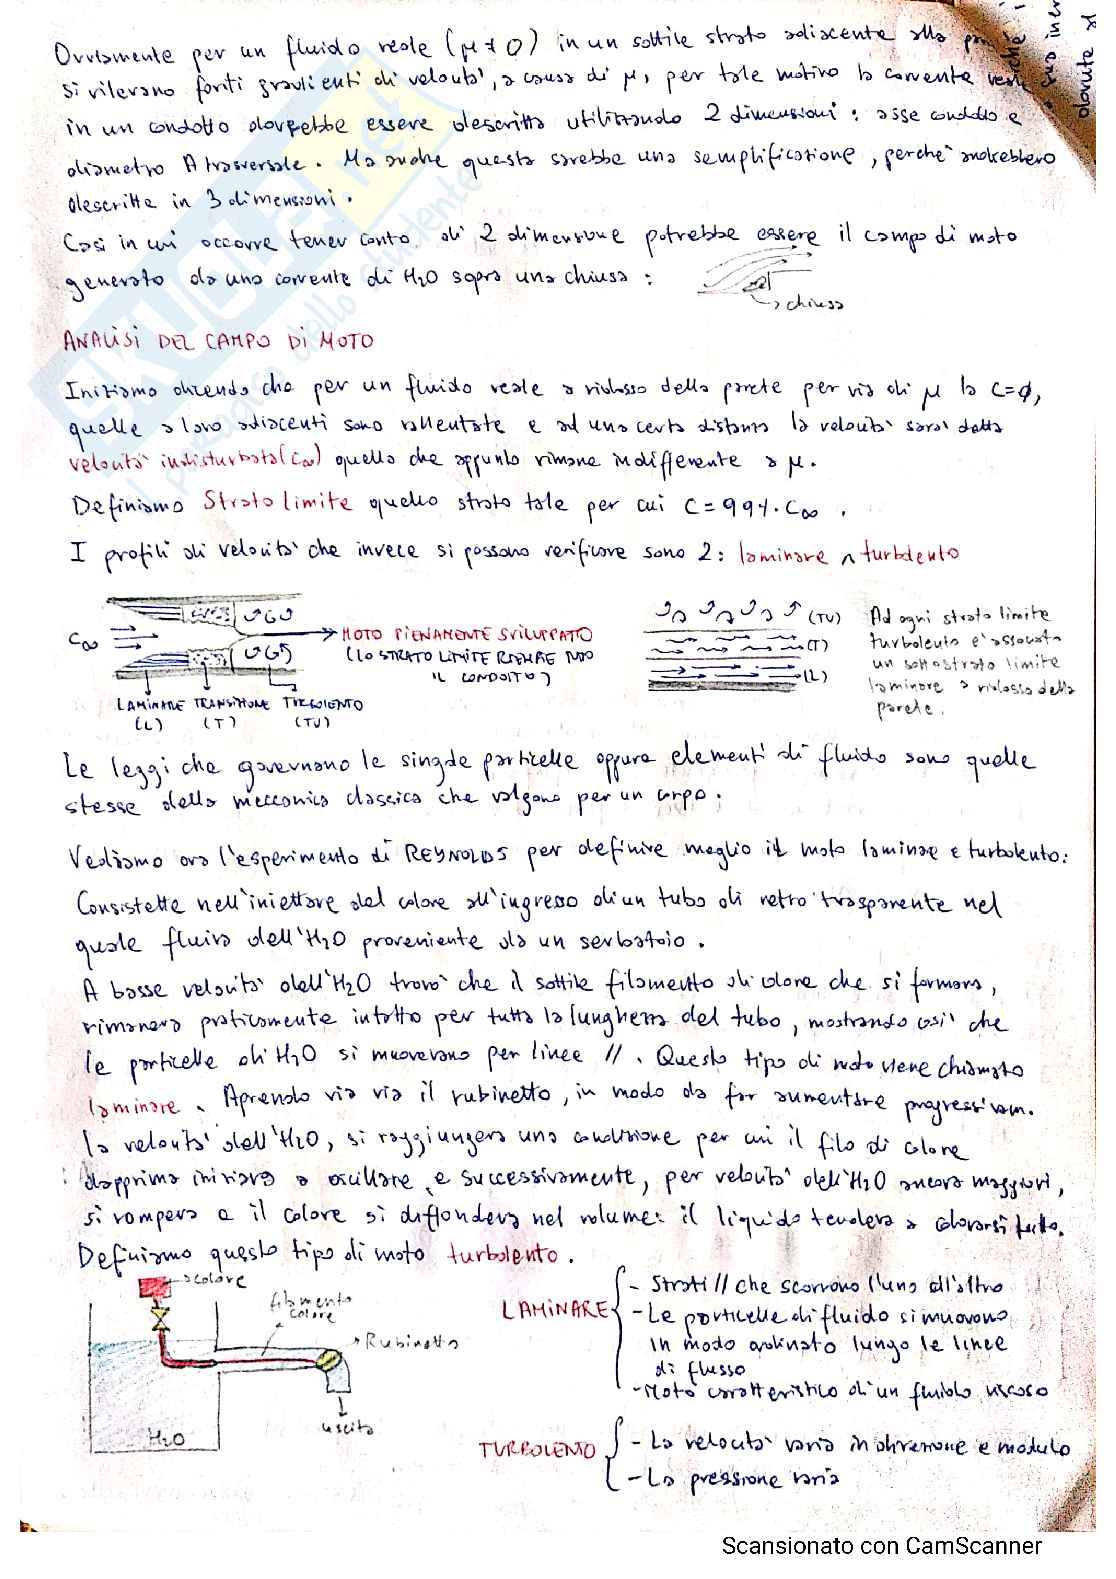 Ovviamente per un fluido reale (μ ≠ 0) in un sottile strato adiacente alla
si rilevano forti gradienti di velocità, a causa di μ, per tale motivo la corrente reale
in un condotto dovrebbe essere descritta utilizzando 2 dimensioni: asse condotto e
diametro trasversale. Ma anche questa sarebbe una semplificazione, perché andrebbero
descritte in 3 dimensioni.
Casi in cui occorre tener conto di 2 dimensione potrebbe essere il campo di moto
generato da una corrente di H2O sopra una chiusa:
chiusa
ANALISI DEL CAMPO DI MOTO
Iniziamo dicendo che per un fluido reale a ridosso della parete per via di μ la c=ø,
quelle a loro adiacenti sono rallentate e ad una certa distanza la velocità sarà detta
velocità indisturbata (c∞) quella che appunto rimane indifferente a μ.
Definiamo Strato limite quello strato tale per cui c=99%·c∞.
I profili di velocità che invece si possono verificare sono 2: laminare turbolento
c∞
MOTO PIENAMENTE SVILUPPATO
(LO STRATO LIMITE RIEMPIE TUTTO
IL CONDOTTO)
LAMINARE TRANSIZIONE TURBOLENTO
(L) (T) (TU)
(TU)
(T)
(L)
Ad ogni strato limite
turbolento è associato
un sottostrato limite
laminare a ridosso della
parete.
Le leggi che governano le singole particelle oppure elementi di fluido sono quelle
stesse della meccanica classica che valgono per un corpo.
Vediamo ora l'esperimento di REYNOLDS per definire meglio il moto laminare e turbolento:
Consistette nell'iniettare del colore all'ingresso di un tubo di vetro trasparente nel
quale fluiva dell'H2O proveniente da un serbatoio.
A basse velocità dell'H2O trovò che il sottile filamento di colore che si formava,
rimaneva praticamente intatto per tutta la lunghezza del tubo, mostrando così che
le particelle di H2O si muovevano per linee //. Questo tipo di moto viene chiamato
laminare. Aprendo via via il rubinetto, in modo da far aumentare progressivam.
la velocità dell'H2O, si raggiungeva una condizione per cui il filo di colore
dapprima iniziava a oscillare e successivamente, per velocità dell'H2O ancora maggiori,
si rompeva e il colore si diffondeva nel volume: il liquido tendeva a colorarsi tutto.
Definiamo questo tipo di moto turbolento.
colore
filamento
colore
Rubinetto
uscita
H2O
LAMINARE
- Strati // che scorrono l'uno all'altro
- Le particelle di fluido si muovono
in modo ordinato lungo le linee
di flusso
- Moto caratteristico di un fluido viscoso
TURBOLENTO
- La velocità varia in direzione e modulo
- La pressione varia
Scansionato con CamScanner